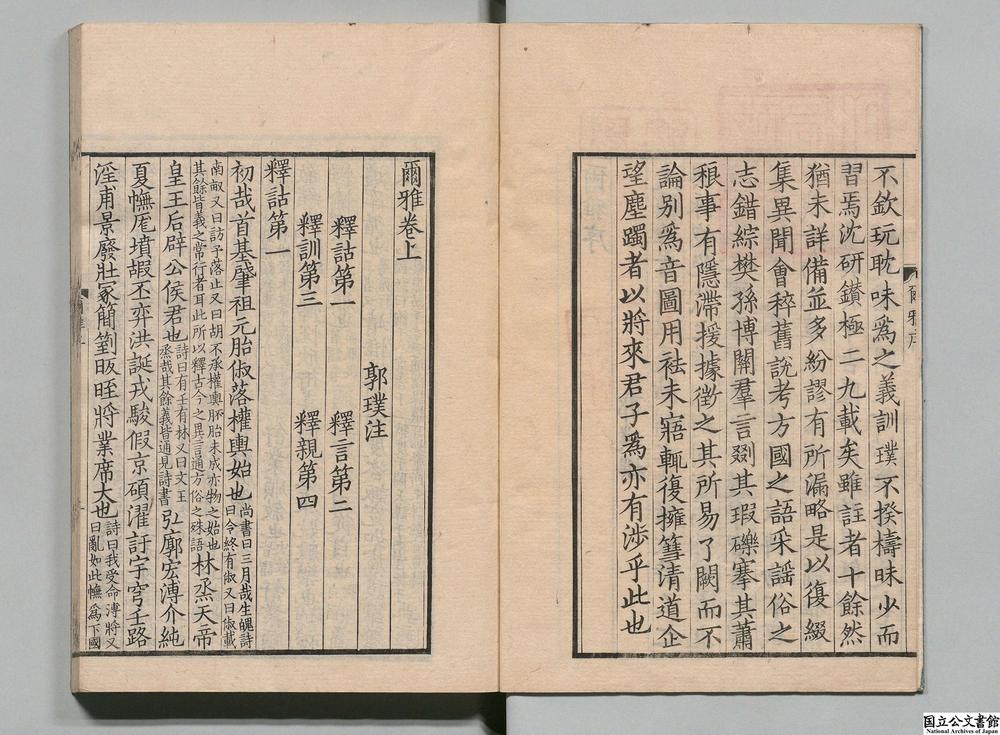 不欽玩耽味為之義訓璞不揆檮昧少而
習焉沈研鑚極二九載矣雖註者十餘然
猶未詳備並多紛謬有所漏略是以復綴
集異聞會稡舊說考方國之語采謠俗之
志錯綜樊孫博關羣言剟其瑕礫搴其蕭
稂事有隱滯援據徵之其所易了闕而不
論別為音圖用袪未寤輒復擁篲清道企
望塵躅者以將來君子為亦有涉乎此也
爾雅序
爾雅卷上
郭璞注
釋詁第一 釋言第二
釋訓第三 釋親第四
釋詁第一
初哉首基肇祖元胎俶落權輿始也尚書曰三月哉生魄詩
曰令終有俶又曰俶載
南畝又曰訪予落止又曰胡不承權輿胚胎未成亦物之始也
其餘皆義之常行者耳此所以釋古今之異言通方俗之殊語
林烝天帝
皇王后辟公侯君也詩曰有壬有林又曰文王
烝哉其餘義皆通見詩書
弘廓宏溥介純
夏幠厖墳嘏丕弈洪誕戎駿假京碩濯訏宇穹壬路
淫甫景廢壯冢簡箌昄晊將業席大也詩曰我受命溥將又
曰亂如此幠為下國
国立公文書館
National Archives of Japan